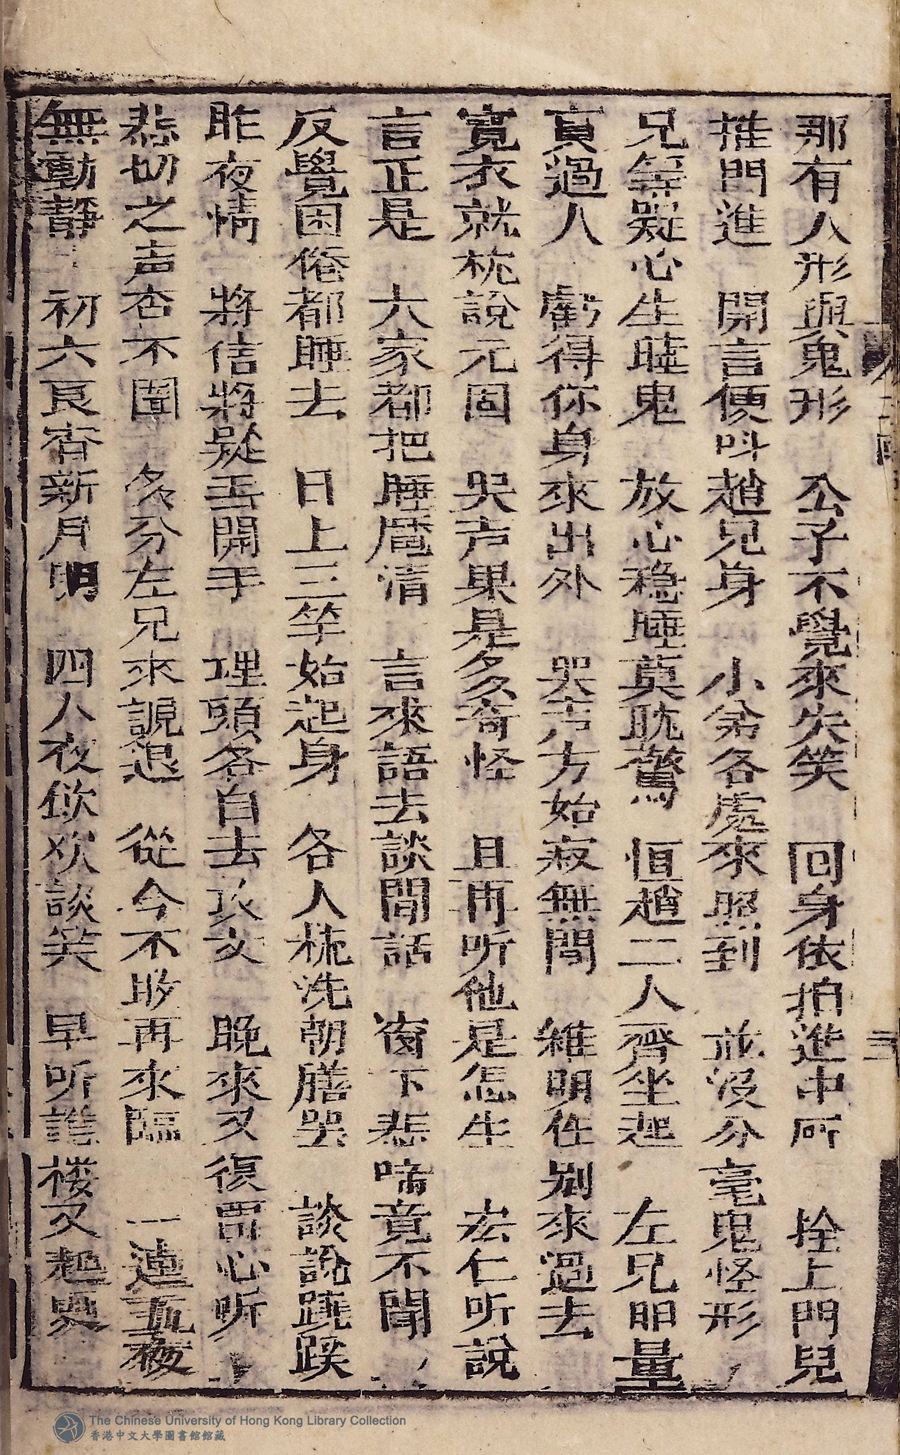 那有人形與鬼形　公子不覺來失笑　回身依拍進中所　拴上門兒
推門進　開言便呌趙兄身　小弟各處來照到　並沒分毫鬼怪形
兄等疑心生睦鬼　放心稳睡莫耽驚　恒趙二人齊坐起　左兄胆量
真過人　虧得你身來出外　哭声方始寂無聞　雖明在别來過去
寬衣就枕說元因　哭声果是多奇怪　且再听他是怎生　宏仁听說
言正是　大家都把睡魔清　言來語去談閒話　窗下悲啼竟不聞
反覺困倦都睡去　日上三竿始起身　各人梳洗朝膳罢　談說蹺蹊
昨夜情　將信將疑丟開手　埋頭各自去攻文　晚來又復畱心听
悲切之声杳不聞　多分左兄來說退　從今不敢再來臨　一連五夜
無動静　初六良宵新月明　四人夜飲欢談笑　早听譙楼又起更
The Chinese University of Hong Kong Library Collection
香港中文大學圖書館館藏